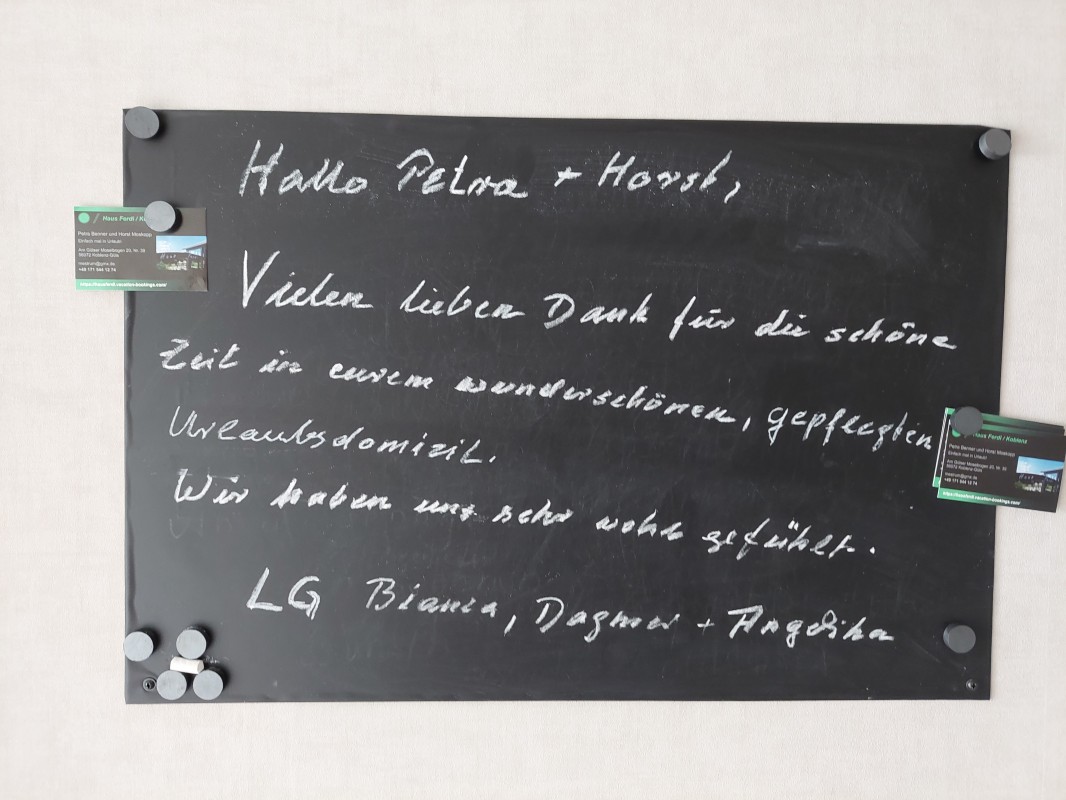 Hallo Petra + Horst,
Vielen lieben Dank für die schöne
Zeit in eurem wunderschönen, gepflegten
Urlaubsdomizil.
Wir haben uns sehr wohl gefühlt.
LG Bianca, Dagmar + Angelika
Haus Ferdi / Ko
Petra Benner und Horst Moskopp
Einfach mal in Urlaub!
Am Gülser Moselbogen 20, Nr. 38
56072 Koblenz-Güls
+49 171 544 12 74
https://hausferdi.vacation-bookings.com/
Haus Ferdi / Koblenz
Petra Benner und Horst Moskopp
Einfach mal in Urlaub!
Am Gülser Moselbogen 20, Nr. 38
56072 Koblenz-Güls
+49 171 544 12 74
https://hausferdi.vacation-bookings.com/